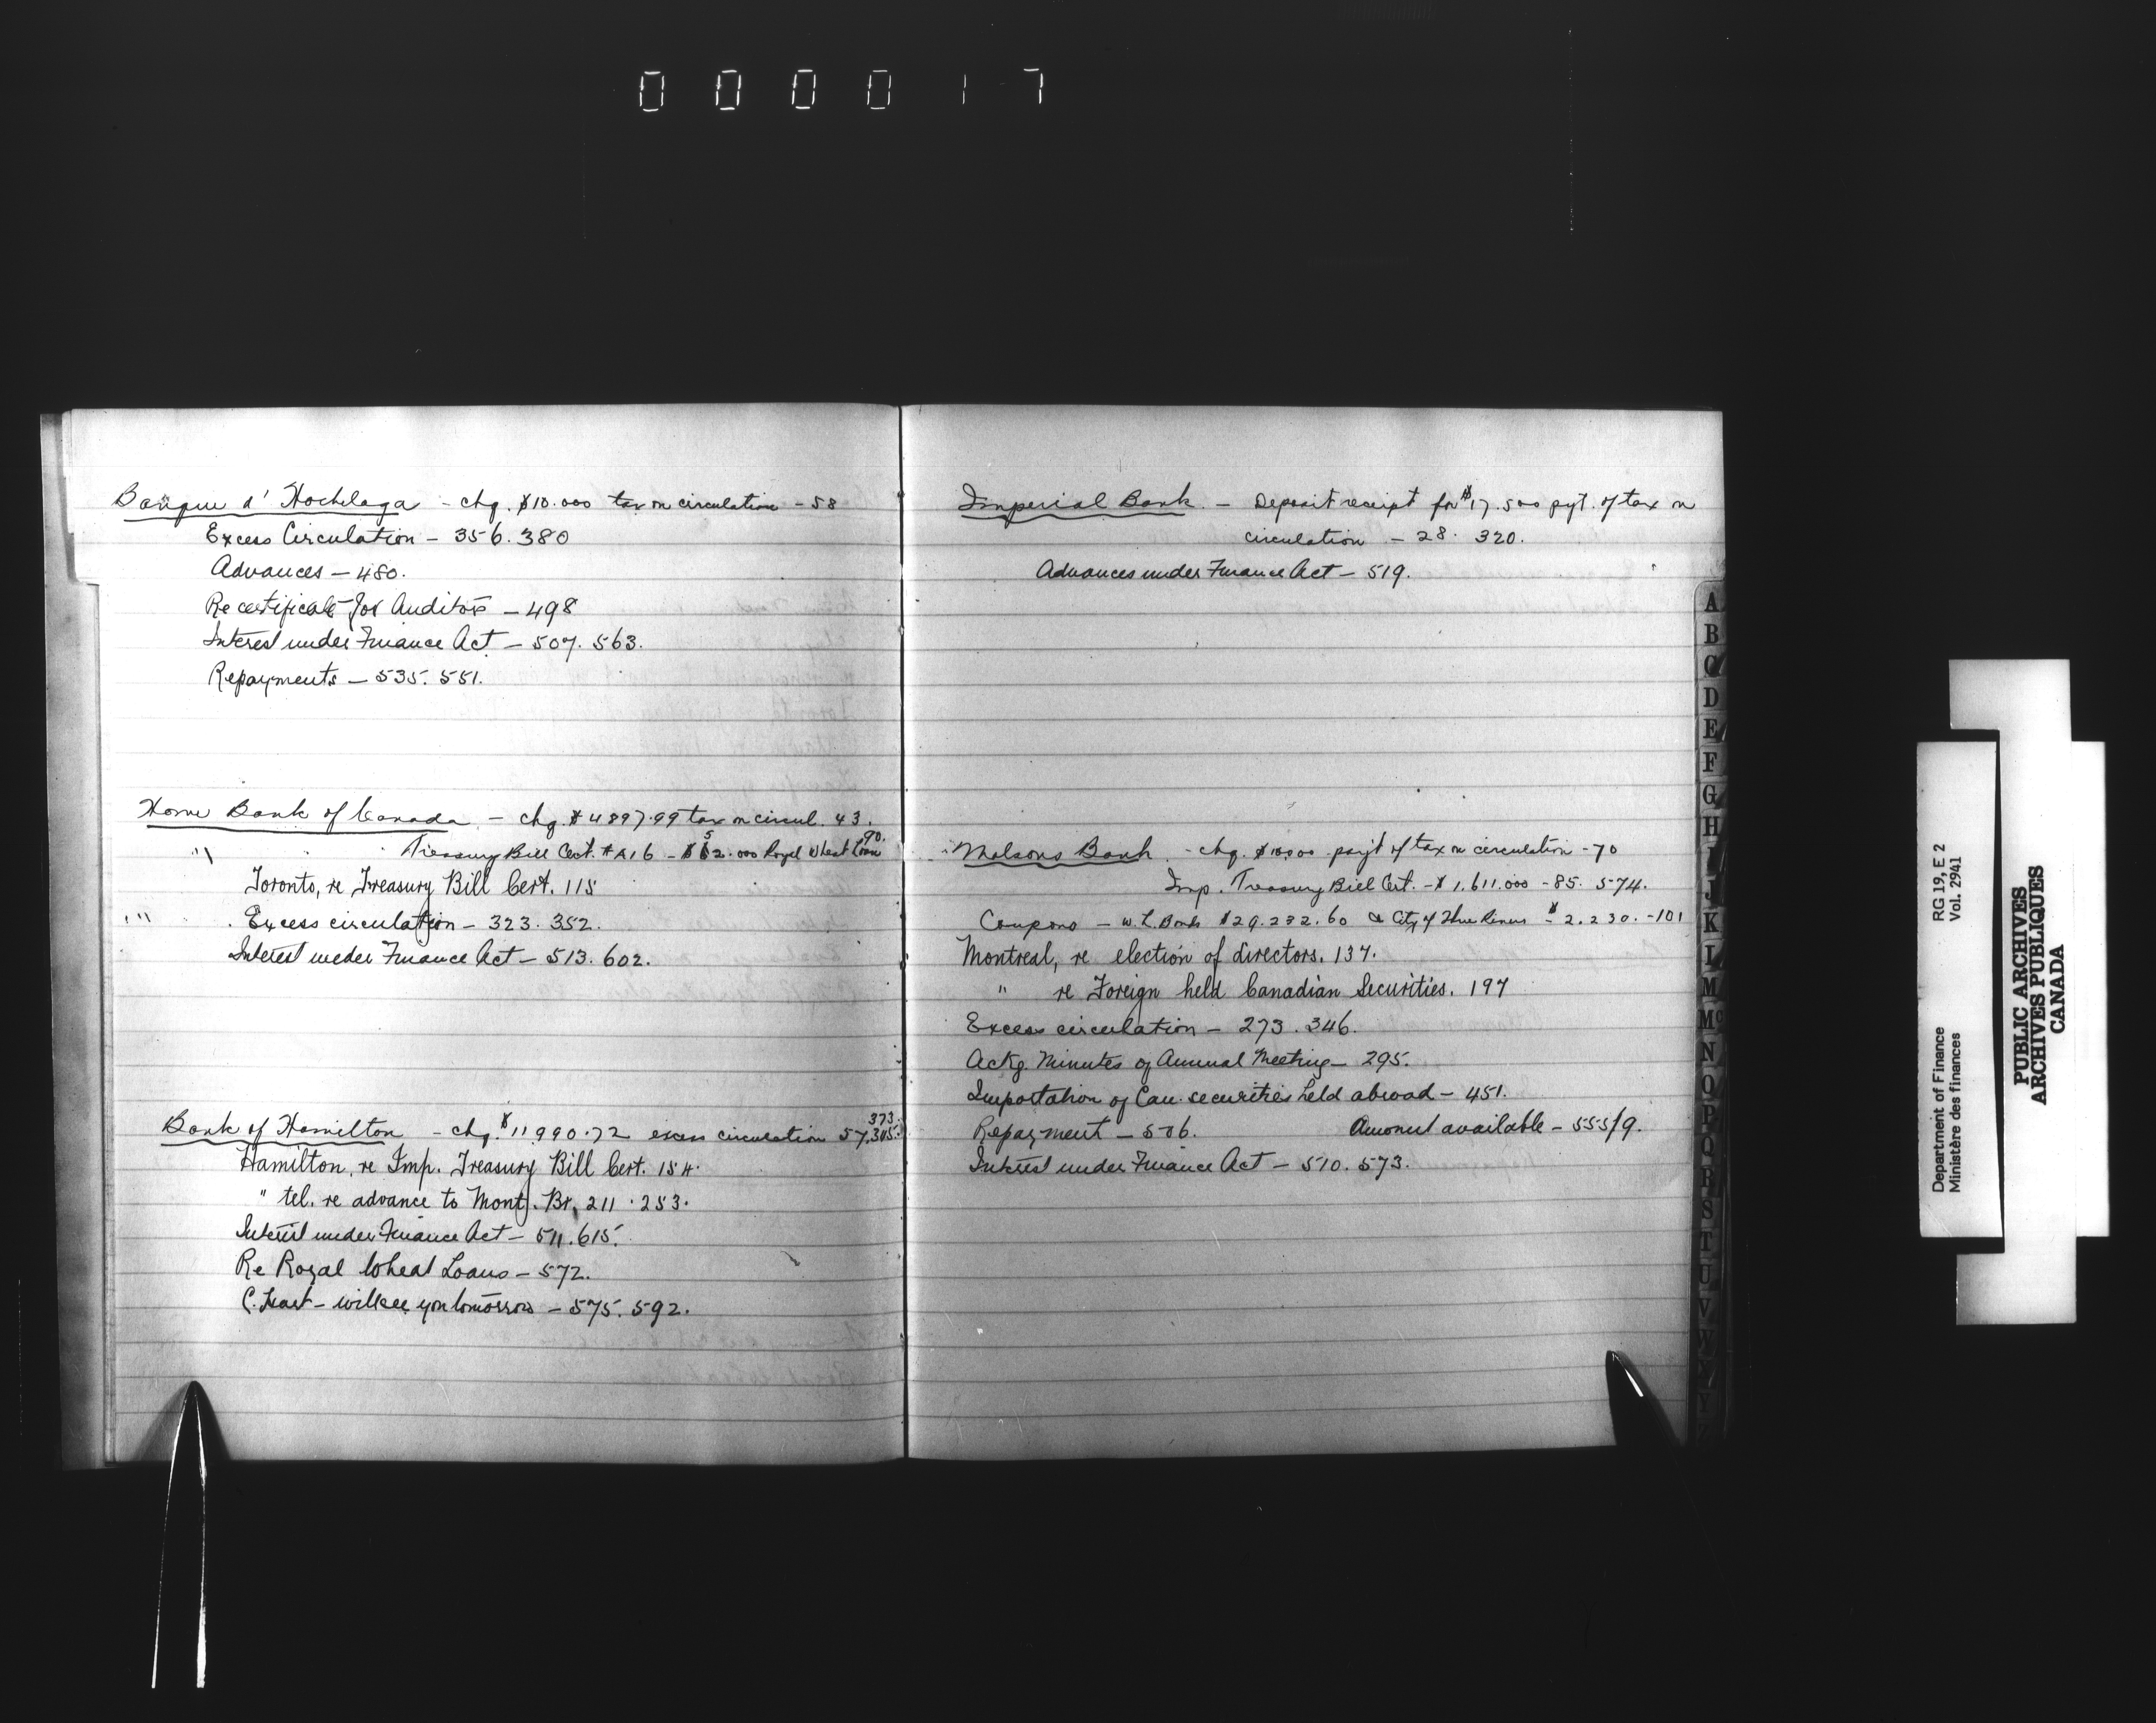 000017
Banque d' Hochelaga - chq. $10.000 tax on circulation - 58
Excess Circulation - 356. 380
Advances - 480.
Re certificate for Auditors - 498
Interest under Finance Act - 507. 563.
Repayments - 535. 551.
Home Bank of Canada - chq. $4897.99 tax on circul. 43.
" Treasury Bill Cert. # A16 - 2.000 Royal Wheat Loan 90.
Toronto, re Treasury Bill Cert. 115
" Excess circulation - 323. 352.
Interest under Finance Act - 513. 602.
Bank of Hamilton - chq. $11990.72 excess circulation 57, 373.
Hamilton, re Imp. Treasury Bill Cert. 154.
" tel. re advance to Mont. Br. 211 . 253.
Interest under Finance Act - 511. 615.
Re Royal Wheat Loans - 572.
C. - will see you tomorrow - 575. 592.
Imperial Bank. - Deposit receipt for $17.500 pyt. of tax on
circulation - 28. 320.
Advances under Finance Act - 519.
Molsons Bank. - chq. $10,000 payt of tax on circulation - 70
Imp. Treasury Bill Cert. - $1.611.000 - 85. 574.
Coupons - W. L. Bonds $29.232.60 & City of Three Rivers - $2.230. - 101
Montreal, re election of directors. 137.
" re Foreign held Canadian Securities. 197
Excess circulation - 273. 346.
Ackg. Minutes of Annual Meeting - 295.
Importation of Can. securities held abroad - 451.
Repayment - 506. Amount available - 555/9.
Interest under Finance Act - 510. 573.
A
B
C
D
E
F
G
H
I
J
K
L
M
Mc
N
O
P
Q
R
S
T
U
V
W
Department of Finance RG 19, E 2
Ministère des finances Vol. 2941
PUBLIC ARCHIVES
ARCHIVES PUBLIQUES
CANADA